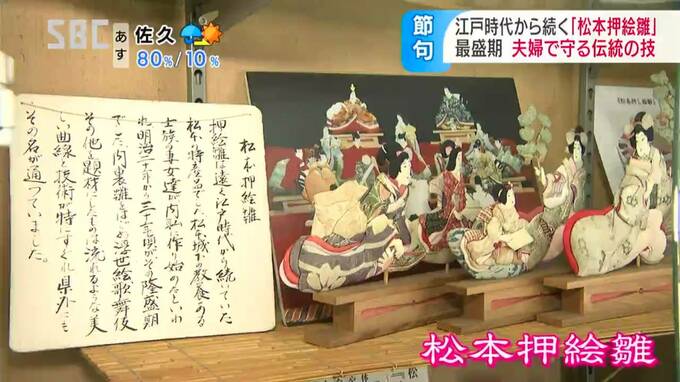 SBC
あす
佐久
80%/10%
節句
江戸時代から続く「松本押絵雛」
最盛期 夫婦で守る伝統の技
松本押絵雛
押絵雛は遠く江戸時代から続いていた
松本特産品でした松本城下の教養のある
士族の妻女達が内職に作り始めたといわ
れ明治二十年から三十年頃がその隆盛期
でした内裏雛はじめ浮世絵歌舞伎
その他を題材にしたものは流れるような美
しい曲線と技術が特にすぐれ県外にも
その名が通っていました。
松本押絵雛